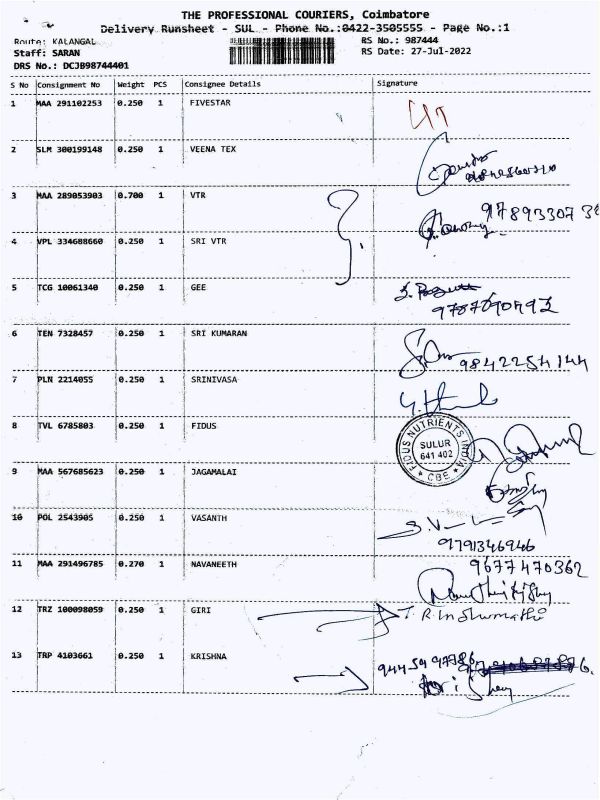 THE PROFESSIONAL COURIERS, Coimbatore
Delivery Runsheet - SUL - Phone No.:0422-3505555 - Page No.:1
Route: KALANGAL RS No.: 987444
Staff: SARAN RS Date: 27-Jul-2022
DRS No.: DCJB98744401
S No Consignment No Weight PCS Consignee Details Signature
1 MAA 291102253 0.250 1 FIVESTAR
2 SLM 300199148 0.250 1 VEENA TEX
3 MAA 289053903 0.700 1 VTR 97893307 38
4 VPL 334608660 0.250 1 SRI VTR
5 TCG 10061340 0.250 1 GEE
6 TEN 7328457 0.250 1 SRI KUMARAN 9842254144
7 PLN 2214055 0.250 1 SRINIVASA
8 TVL 6785803 0.250 1 FIDUS
FIDUS NUTRIENTS INDIA
SULUR
641 402
CBE
9 MAA 567685623 0.250 1 JAGAMALAI
10 POL 2543905 0.250 1 VASANTH
9791346946
11 MAA 291496785 0.270 1 NAVANEETH 9677470362
12 TRZ 100098059 0.250 1 GIRI T. R. Indhumathi
13 TRP 4103661 0.250 1 KRISHNA 9445997786